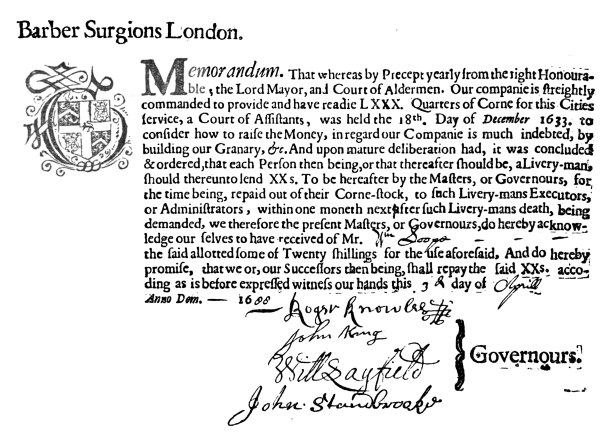 Barber Surgions London.
Memorandum. That whereas by Precept yearly from the right Honoura-
ble, the Lord Mayor, and Court of Aldermen. Our companie is streightly
commanded to provide and have readie LXXX. Quarters of Corne for this Cities
service, a Court of Assistants, was held the 18th. Day of December 1633. to
consider how to raise the Money, in regard our Companie is much indebted, by
building our Granary, &c. And upon mature deliberation had, it was concluded
& ordered, that each Person then being, or that thereafter should be, a Livery-man,
should thereunto lend XXs. To be hereafter by the Masters, or Governours, for
the time being, repaid out of their Corne-stock, to such Livery-mans Executors,
or Administrators, within one moneth next after such Livery-mans death, being
demanded, we therefore the present Masters, or Governours, do hereby acknow-
ledge our selves to have received of Mr. Wm
the said allotted some of Twenty shillings for the use aforesaid, And do hereby
promise, that we or, our Successors then being, shall repay the said XXs. acco-
ding as is before expressed witness our hands this 3d day of Aprill
Anno Dom. — 1688
Roger Knowles
John King
Will Layfield
Governours.
John Standbrooke